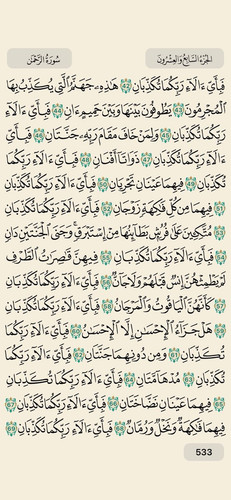 الجُزْءُ السَّابِعُ وَالعِشْرُونَ
سُورَةُ الرَّحْمَٰن
فَبِأَيِّ ءَالَآءِ رَبِّكُمَا تُكَذِّبَانِ 42 هَٰذِهِۦ جَهَنَّمُ ٱلَّتِي يُكَذِّبُ بِهَا
ٱلْمُجْرِمُونَ 43 يَطُوفُونَ بَيْنَهَا وَبَيْنَ حَمِيمٍ ءَانٍ 44 فَبِأَيِّ ءَالَآءِ
رَبِّكُمَا تُكَذِّبَانِ 45 وَلِمَنْ خَافَ مَقَامَ رَبِّهِۦ جَنَّتَانِ 46 فَبِأَيِّ
ءَالَآءِ رَبِّكُمَا تُكَذِّبَانِ 47 ذَوَاتَآ أَفْنَانٍ 48 فَبِأَيِّ ءَالَآءِ رَبِّكُمَا
تُكَذِّبَانِ 49 فِيهِمَا عَيْنَانِ تَجْرِيَانِ 50 فَبِأَيِّ ءَالَآءِ رَبِّكُمَا تُكَذِّبَانِ
51 فِيهِمَا مِن كُلِّ فَٰكِهَةٍ زَوْجَانِ 52 فَبِأَيِّ ءَالَآءِ رَبِّكُمَا تُكَذِّبَانِ
53 مُتَّكِـِٔينَ عَلَىٰ فُرُشٍۭ بَطَآئِنُهَا مِنْ إِسْتَبْرَقٍ ۚ وَجَنَى ٱلْجَنَّتَيْنِ دَانٍ
54 فَبِأَيِّ ءَالَآءِ رَبِّكُمَا تُكَذِّبَانِ 55 فِيهِنَّ قَٰصِرَٰتُ ٱلطَّرْفِ
لَمْ يَطْمِثْهُنَّ إِنسٌ قَبْلَهُمْ وَلَا جَآنٌّ 56 فَبِأَيِّ ءَالَآءِ رَبِّكُمَا تُكَذِّبَانِ
57 كَأَنَّهُنَّ ٱلْيَاقُوتُ وَٱلْمَرْجَانُ 58 فَبِأَيِّ ءَالَآءِ رَبِّكُمَا تُكَذِّبَانِ
59 هَلْ جَزَآءُ ٱلْإِحْسَٰنِ إِلَّا ٱلْإِحْسَٰنُ 60 فَبِأَيِّ ءَالَآءِ رَبِّكُمَا
تُكَذِّبَانِ 61 وَمِن دُونِهِمَا جَنَّتَانِ 62 فَبِأَيِّ ءَالَآءِ رَبِّكُمَا
تُكَذِّبَانِ 63 مُدْهَآمَّتَانِ 64 فَبِأَيِّ ءَالَآءِ رَبِّكُمَا تُكَذِّبَانِ
65 فِيهِمَا عَيْنَانِ نَضَّاخَتَانِ 66 فَبِأَيِّ ءَالَآءِ رَبِّكُمَا تُكَذِّبَانِ 67
فِيهِمَا فَٰكِهَةٌ وَنَخْلٌ وَرُمَّانٌ 68 فَبِأَيِّ ءَالَآءِ رَبِّكُمَا تُكَذِّبَانِ 69
533